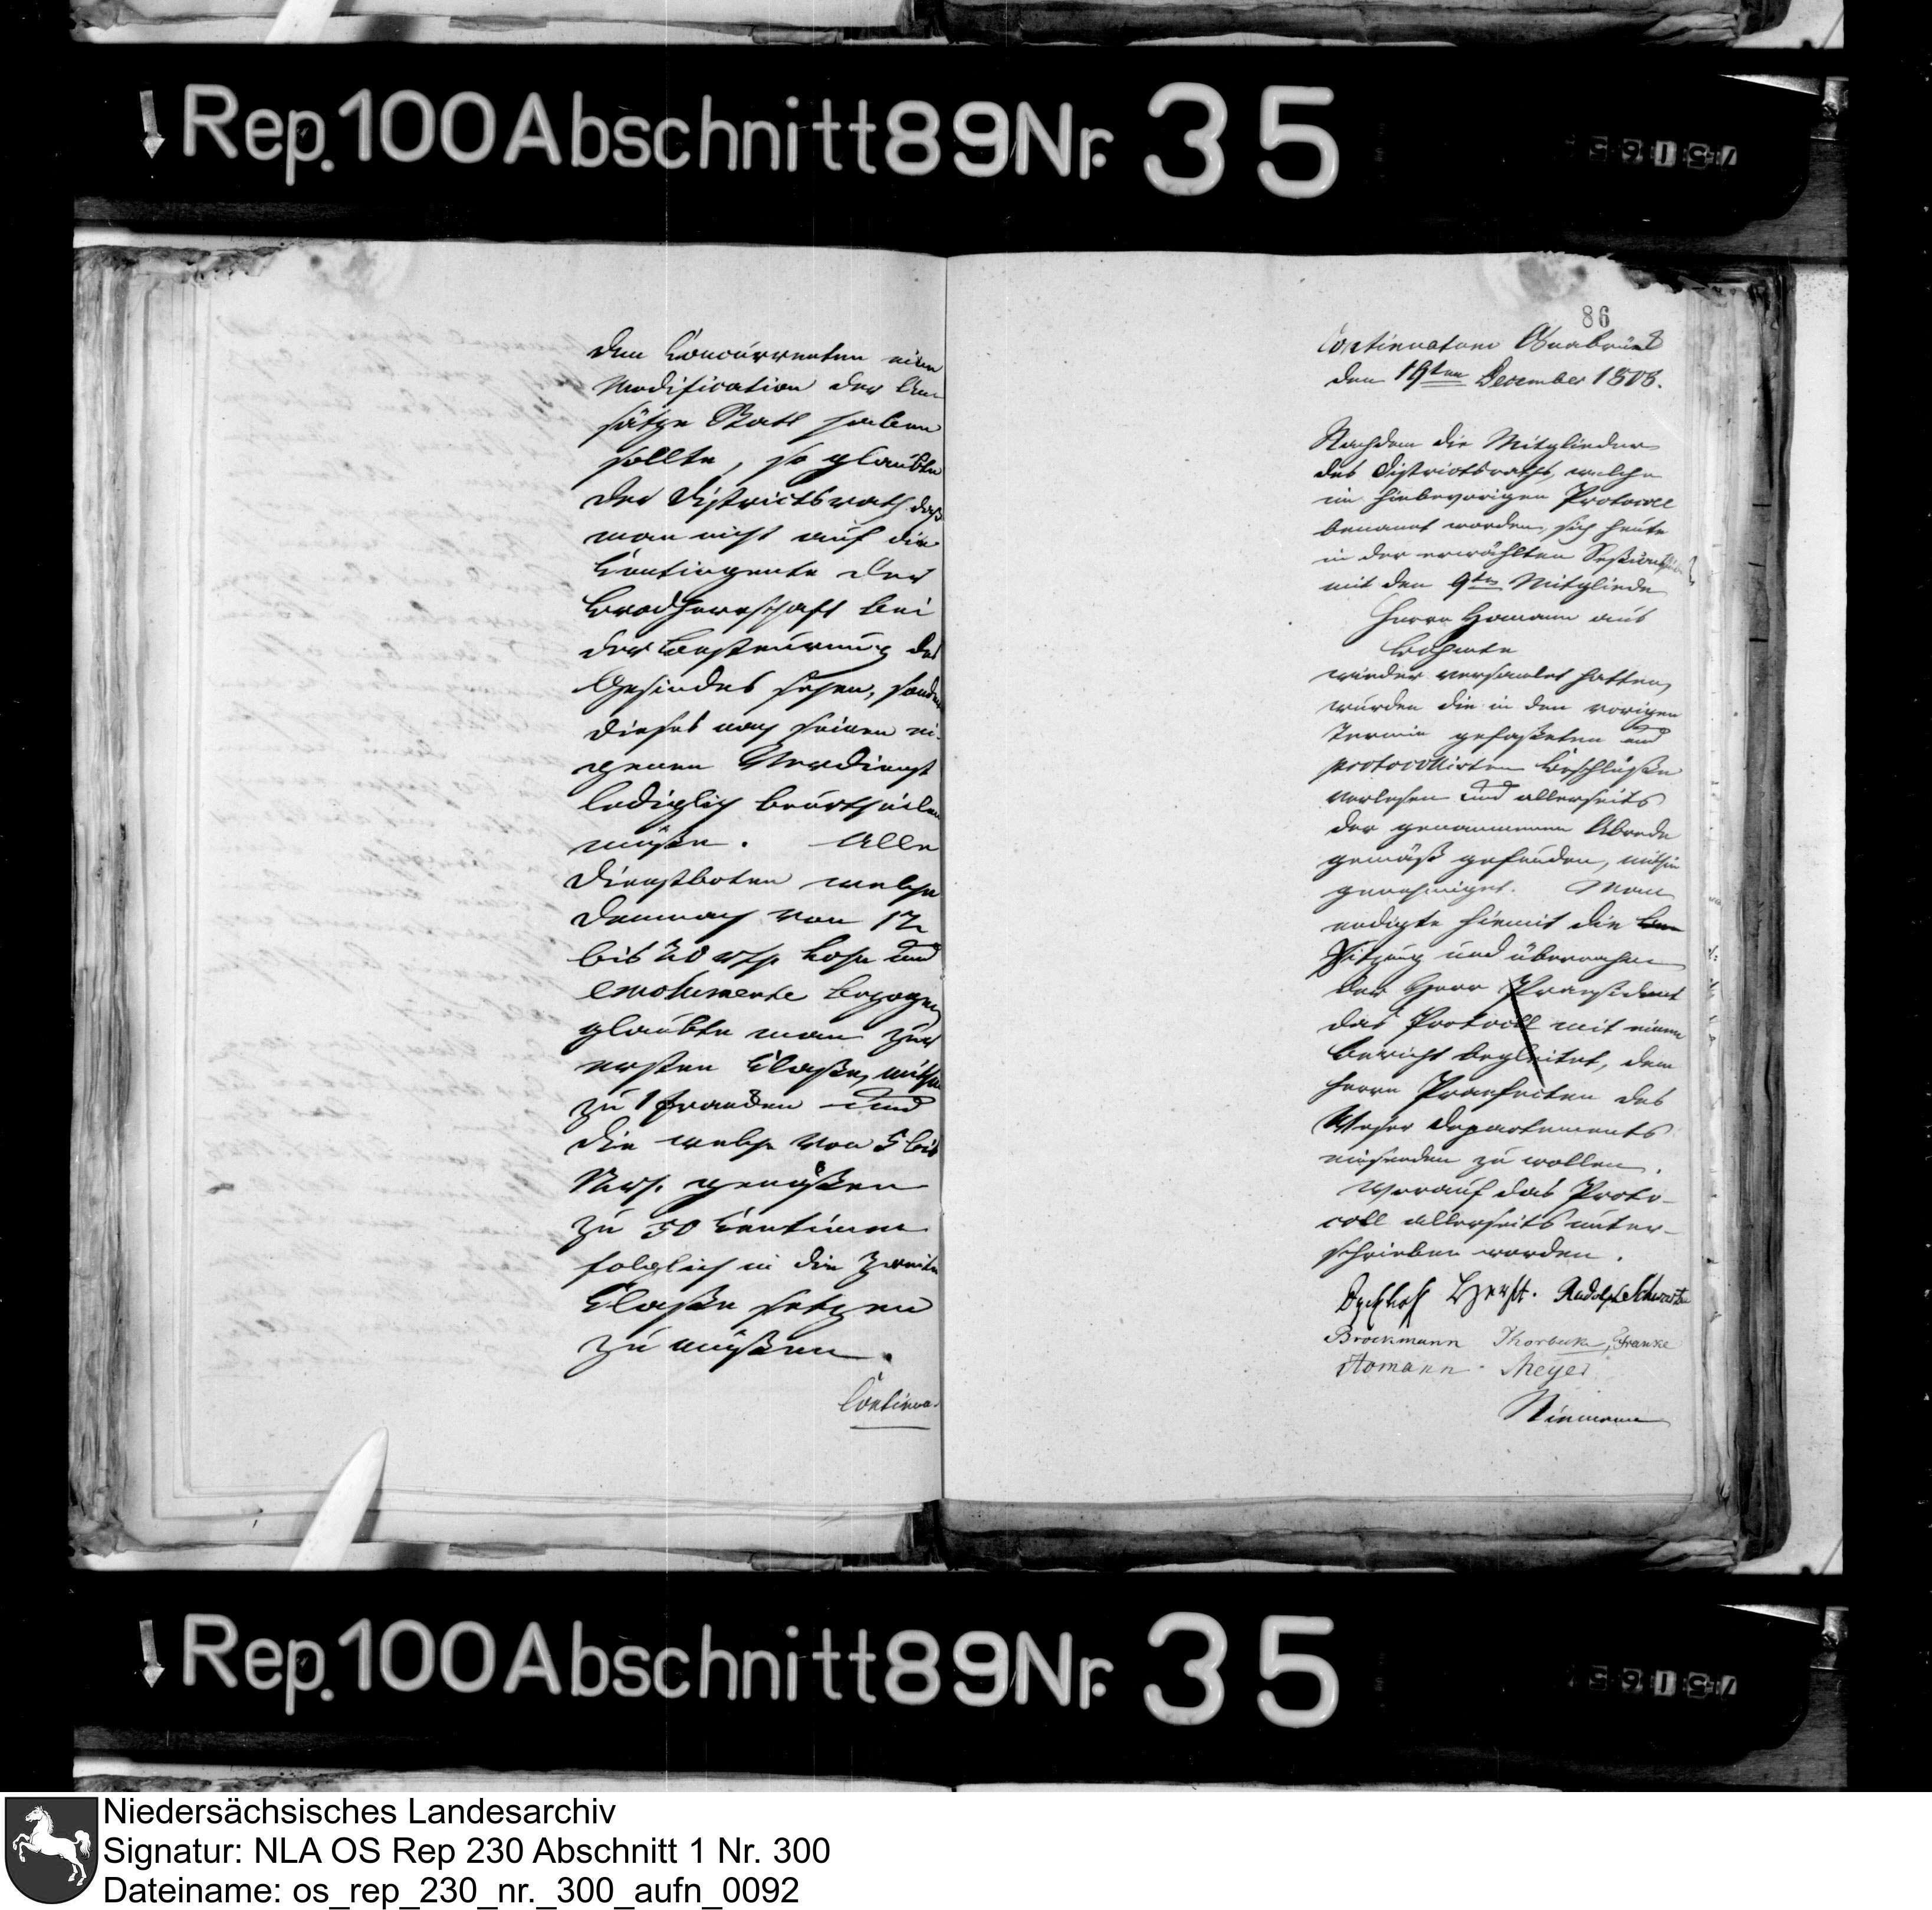 Rep. 100 Abschnitt 89 Nr. 35
den Concurrenten eine
Modification der An-
sätze Statt haben
sollte, so glaubte
der Districtsrath daß
man nicht auf die
Contingente der
Brodherrschaft bei
der Besteurung des
Gesindes sehen, sondern
dieses nach seinen ei-
genen Verdienst
lediglich beurtheilen
müße. Alle
Dienstboten welche
demnach von 12
bis 20 rth. Lohn und
Emolumente bezogen
glaubte man zur
ersten Claße, mithin
zu 1 Franken und
die welche von 5 bis
genößen
zu 50 Centimen
folglich in die zweite
Claße setzen
zu müßen.
Continua-
86
Continuatum Osnabrück
den 19ten December 1808.
Nachdem die Mitglieder
des Districtsraths, welche
im hiebevorigen Protocoll
benannt worden, sich heute
in der erwählten
mit den 9ten Mitgliede
Herrn Homann aus
wieder versamlet hatten,
wurden die in den vorigen
Termin gefaßeten und
protocollirten Beschlüße
verlesen und allerseits
der genommenen Abrede
gemäß gefunden, mithin
genehmiget. Man
endigte hiemit die
Sitzung und übernahm
der Herr Praesident
das Protocoll mit einem
Bericht begleitet, dem
Herrn Praefecten des
Weser Departements
einsenden zu wollen.
Worauf das Proto-
coll allerseits unter-
schrieben worden.
Rudolph Schwartze
Brockmann Thorbecke, Franke
Homann. Meyer
Niemann
Rep. 100 Abschnitt 89 Nr. 35
Niedersächsisches Landesarchiv
Signatur: NLA OS Rep 230 Abschnitt 1 Nr. 300
Dateiname: os_rep_230_nr._300_aufn_0092